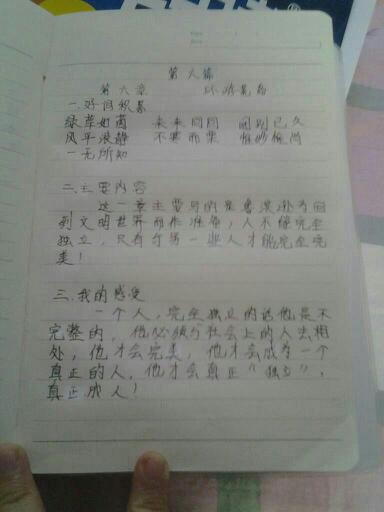 第六篇
第六章 环游荒岛
一.好词积累
绿草如茵 来来回回 阔别已久
风平浪静 不寒而栗 惟妙惟肖
一无所知
二.主要内容
这一章主要写的是鲁滨孙为回
到文明世界而作准备，人不能完全
独立，只有与另一些人才能完全完
美！
三.我的感受
一个人，完全独立的话他是不
完整的，他必须与社会上的人去相
处，他才会完美，他才会成为一个
真正的人，他才会真正"独立"，
真正成人！